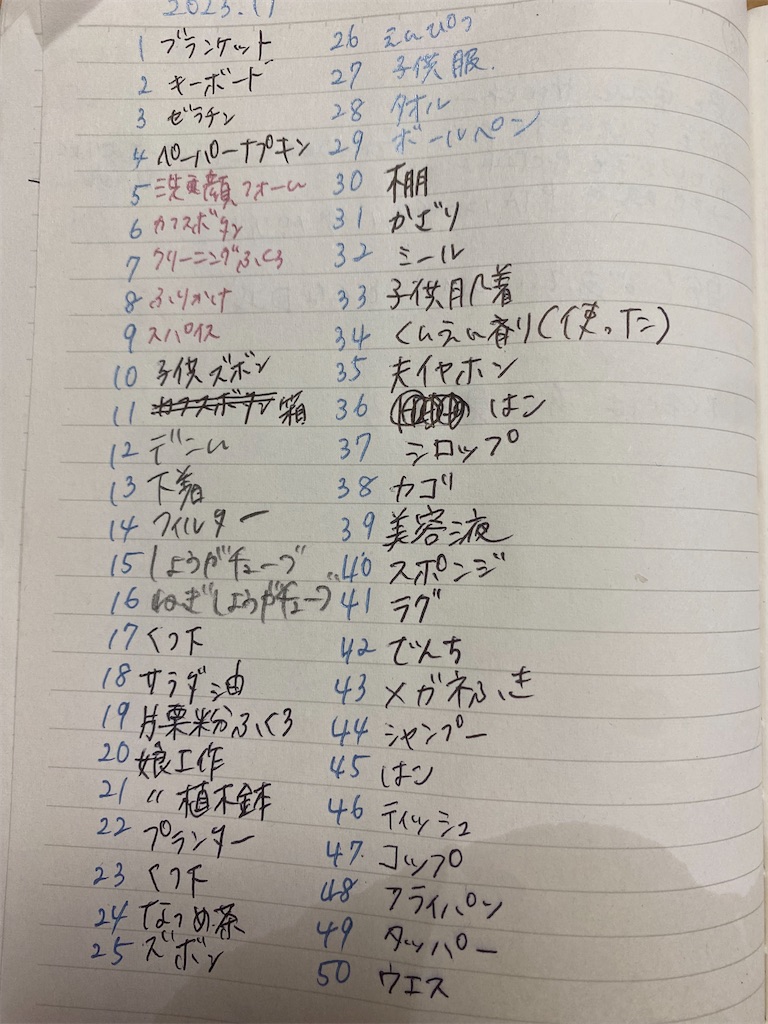 2023.11
1 ブランケット
2 キーボード
3 ゼラチン
4 ペーパーナプキン
5 洗顔フォーム
6 カフスボタン
7 クリーニングふくろ
8 ふりかけ
9 スパイス
10 子供ズボン
11 カフスボタン 箱
12 デニム
13 下着
14 フィルター
15 しょうがチューブ
16 ねぎしょうがチューブ
17 くつ下
18 サラダ油
19 片栗粉ふくろ
20 娘工作
21 〃 植木鉢
22 プランター
23 くつ下
24 なつめ茶
25 ズボン
26 えんぴつ
27 子供服.
28 タオル
29 ボールペン
30 棚
31 かざり
32 ミール
33 子供肌着
34 くんえん香り(使った)
35 夫イヤホン
36 はン
37 シロップ
38 カゴ
39 美容液
40 スポンジ
41 ラグ
42 でんち
43 メガネふき
44 シャンプー
45 はン
46 ティッシュ
47. コップ
48 フライパン
49 タッパー
50 ウエス